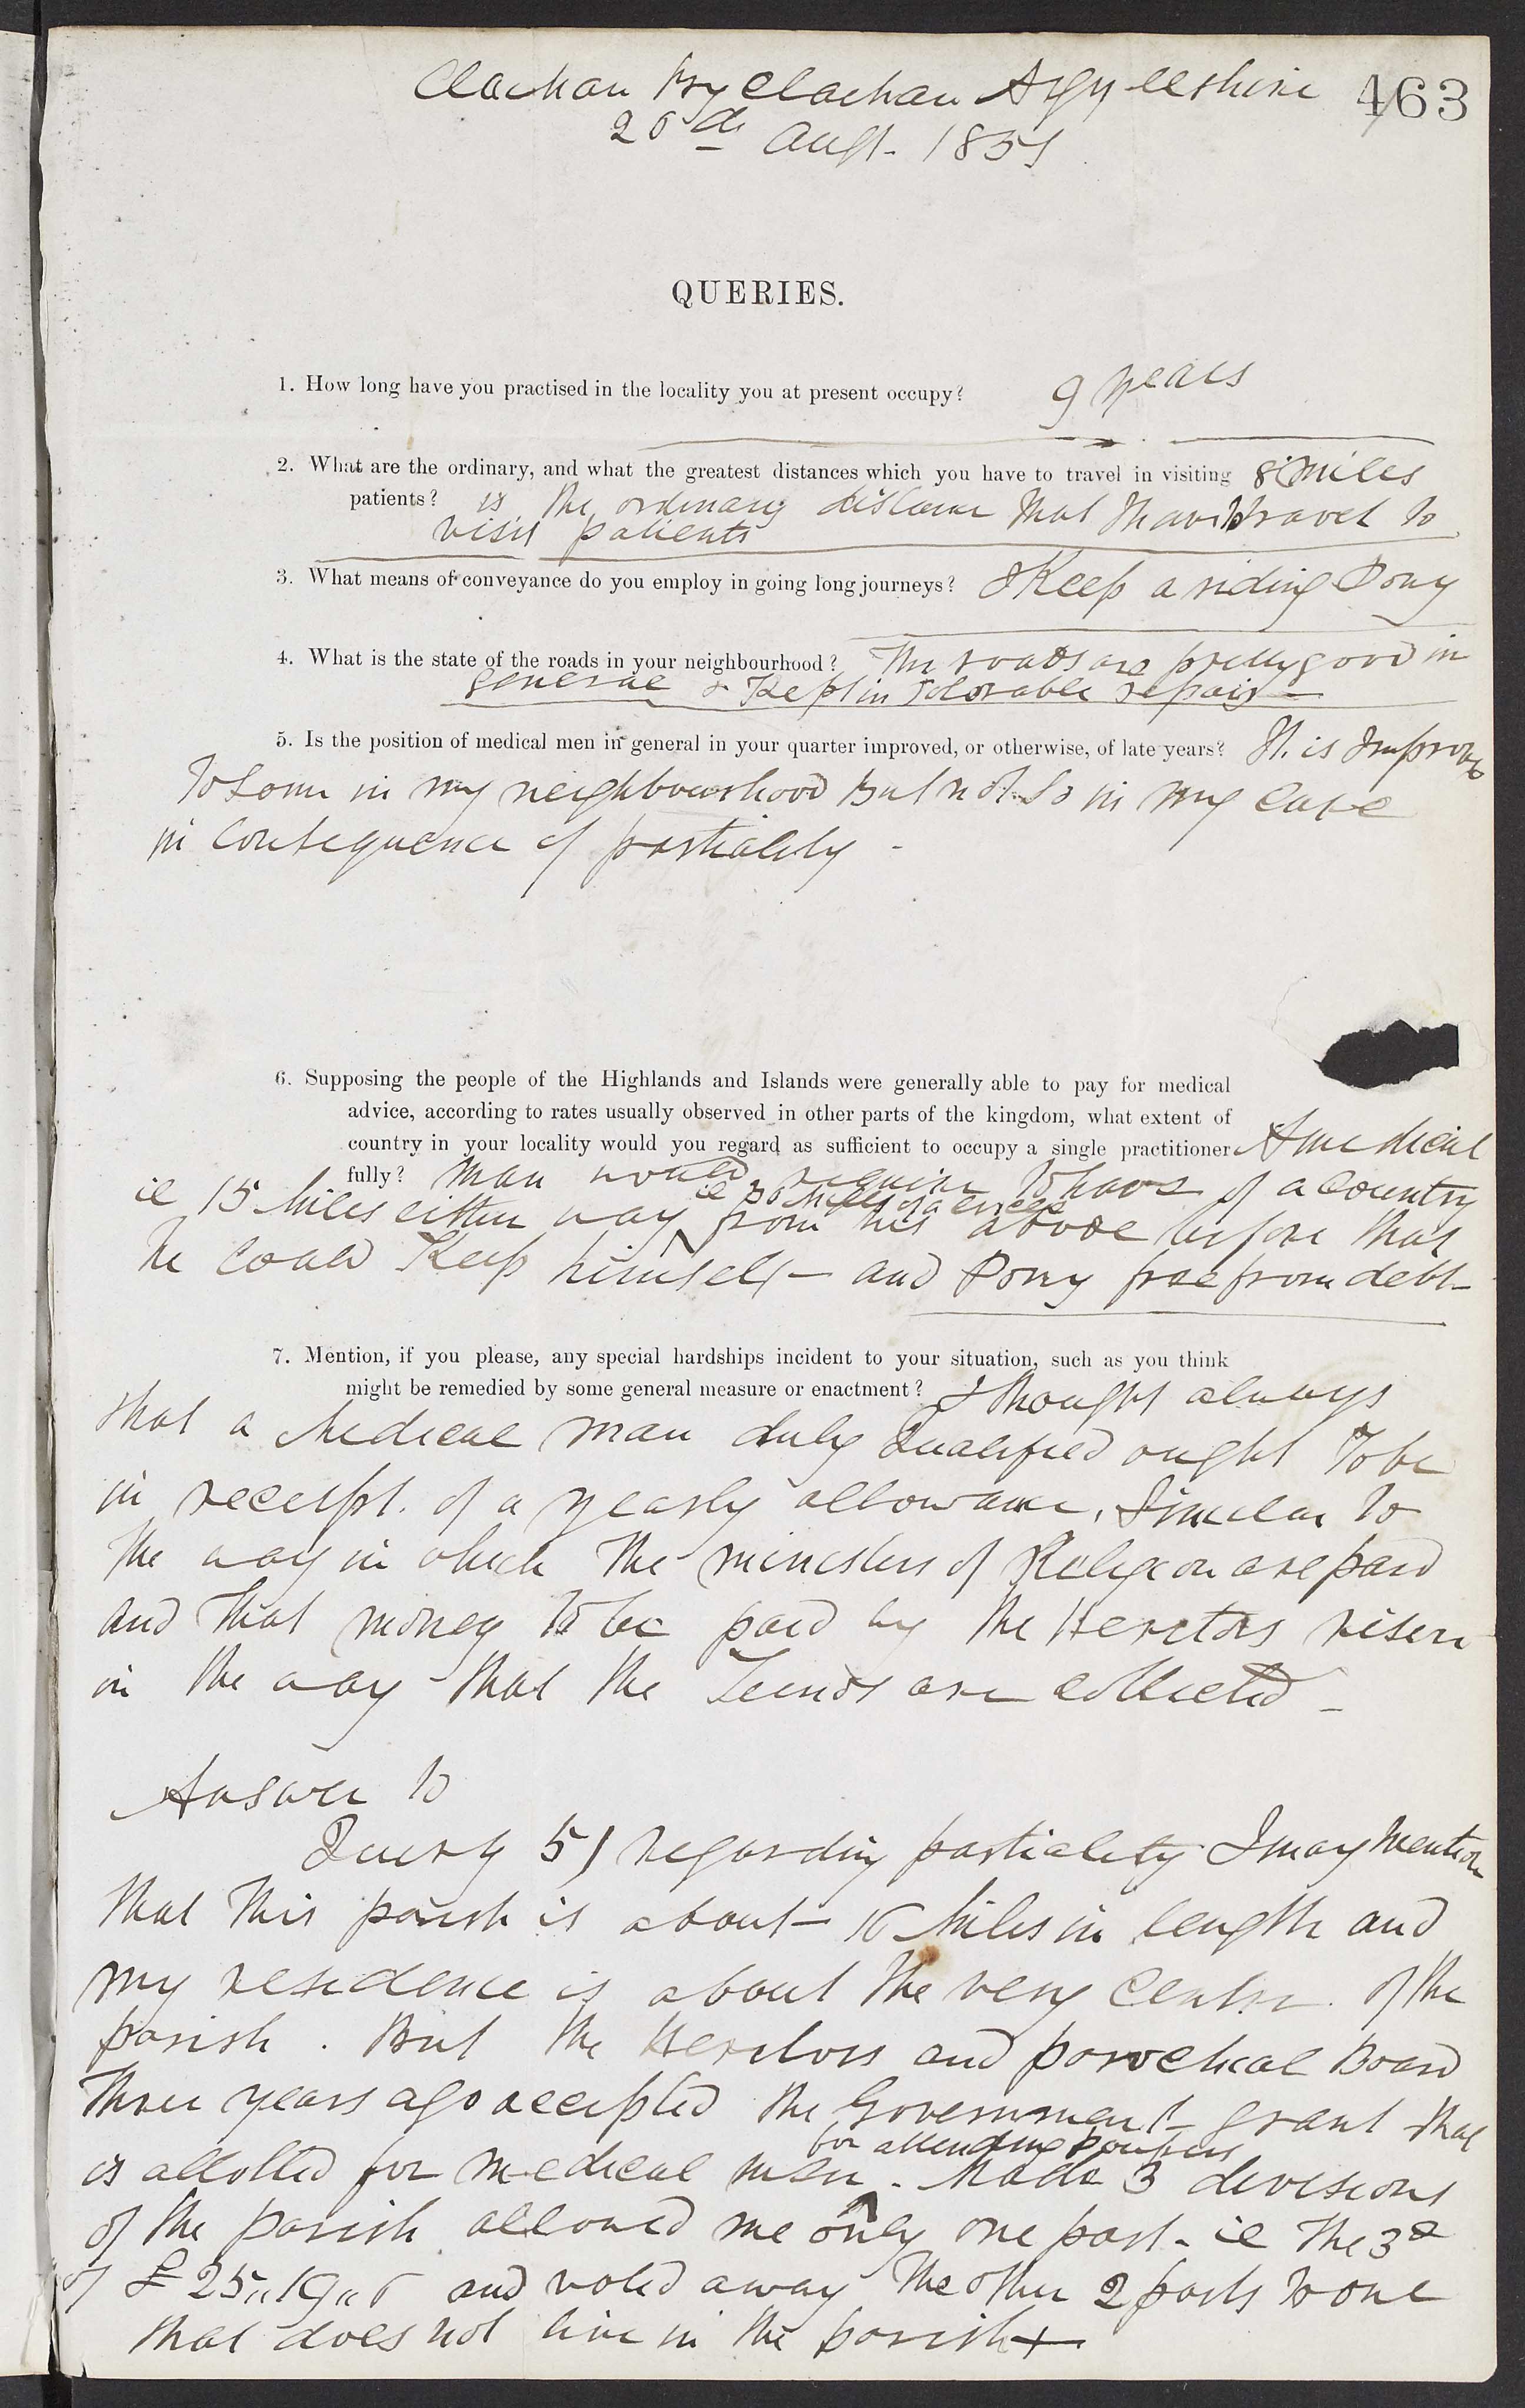 Clachan By Clachan Argyllshire 463
26th Augt. 1851
QUERIES.
1. How long have you practised in the locality you at present occupy? 9 years
2. What are the ordinary, and what the greatest distances which you have to travel in visiting 8 Miles
patients? is the ordinary distance that I have to travel to
visit patients
3. What means of conveyance do you employ in going long journeys? I Keep a riding Pony
4. What is the state of the roads in your neighbourhood? The roads are pretty good in
general & Kept in tolorable repair
5. Is the position of medical men in general in your quarter improved, or otherwise, of late years? It is Improved
to Some in my neighbourhood But not So in my case
in consequence of partiality -
6. Supposing the people of the Highlands and Islands were generally able to pay for medical
advice, according to rates usually observed in other parts of the kingdom, what extent of
country in your locality would you regard as sufficient to occupy a single practitioner A medical
fully? Man would require to have of a Country
ie 30 Miles of a circle
ie 15 Miles either way from his abode before that
he could Keep himself - and Pony free from debt
7. Mention, if you please, any special hardships incident to your situation, such as you think
might be remedied by some general measure or enactment? I thought always
that a Medical man duly Qualified ought to be
in receipt of a yearly allowance, Similar to
the way in which the ministers of Religion are paid
and that money to be paid by the Heretors
in the way that the Teinds are collected -
Answer to
Query 5) regarding partiality I may Mention
that this parish is about 16 Miles in length and
my residence is about the very Centre of the
parish. But the Heretors and parochical Board
three years ago accepted the Government grant that
for attending paupers
is allotted for medical men. Made 3 divisions
of the parish allowed me only one part - ie The 3d
of £25,,19,,6 and voted away the other 2 parts to one
that does not live in the parish +